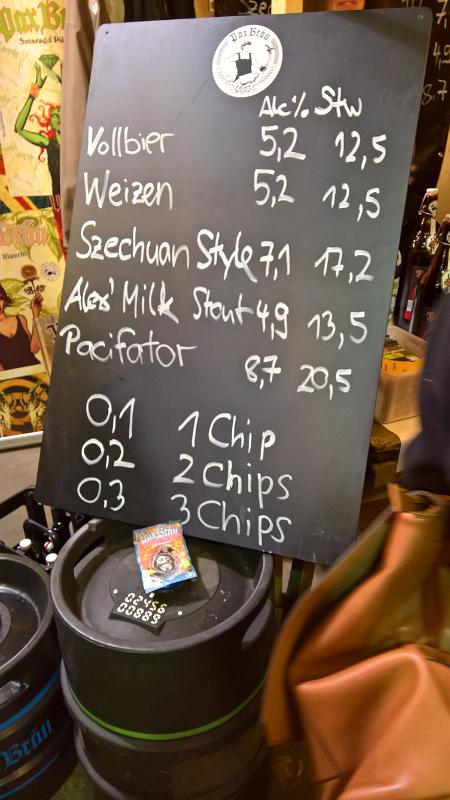 Pax Bräu
Smaragd Pils
Pax Bräu
Alc% Stw
Vollbier 5,2 12,5
Weizen 5,2 12,5
Szechuan Style 7,1 17,2
Alex' Milk Stout 4,9 13,5
Pacifator 8,7 20,5
0,1 1 Chip
0,2 2 Chips
0,3 3 Chips
Bräu
Blanche
PaxBräu
02456
00889
Bräu